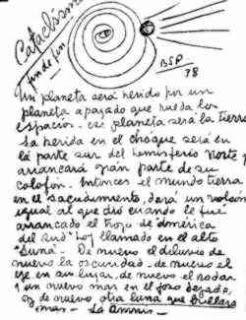 Cataclismo
fin de fin
BSP
38
Un planeta será herido por un
planeta apagado que rueda los
espacios. ese planeta será la tierra
La herida en el choque será en
la parte sur del hemisferio norte y
arrancará gran parte de su
Entonces el mundo tierra
en el sacudimiento, dará un
igual al que dió cuando le fué
arrancado el trozo de américa
del sud hoy llamado en el alto
"Luna" - De nuevo el diluvio de
nuevo la oscuridad - de nuevo el
eje en su lugar, de nuevo el rodar
un nuevo mar en el foso dejado,
y de nuevo otra luna que brillará
mas -